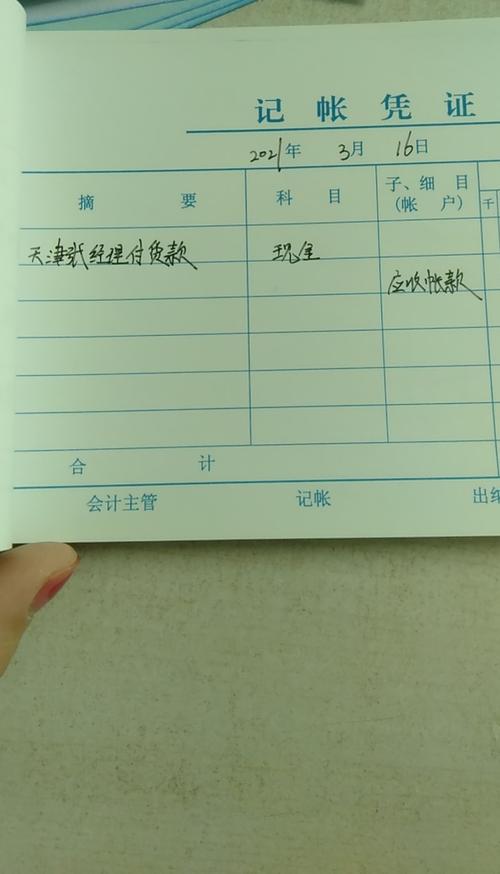 记帐凭证
2021年 3月 16日
摘要 科目 子、细目
(帐户) 千
天津张经理付货款 现金
应收帐款
合计
会计主管 记帐 出纳